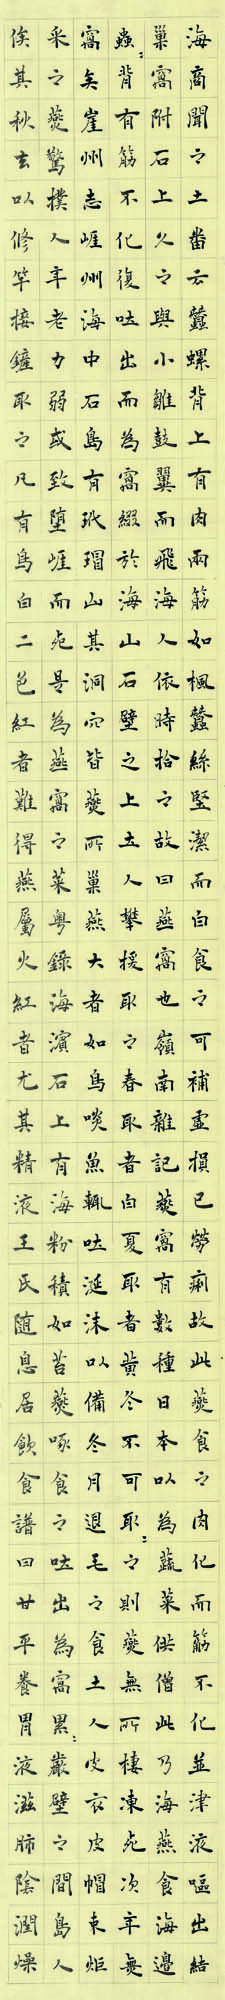 海商聞之土番云蠶螺背上有肉兩筋如楓蠶絲堅潔而白食之可補虛損已勞痢故此燕食之肉化而筋不化並津液嘔出結
巢窩附石上久之與小雛鼓翼而飛海人依時拾之故曰燕窩也嶺南雜記燕窩有數種日本以為蔬菜供僧此乃海燕食海邊
蟲蟲背有筋不化復吐出而為窩綴於海山石壁之上土人攀援取之春取者白夏取者黃冬不可取取之則燕無所棲凍死次年無
窩矣崖州志崖州海中石島有玳瑁山其洞穴皆燕所巢燕大者如烏啖魚輒吐涎沫以備冬月退毛之食土人皮衣皮帽束炬
采之燕驚撲人年老力弱或致墮崖而死是為燕窩之菜粵錄海濱石上有海粉積如苔燕啄食之吐出為窩累累巖壁之間島人
俟其秋去以修竿接鏟取之凡有烏白二色紅者難得燕屬火紅者尤其精液王氏隨息居飲食譜曰甘平養胃液滋肺陰潤燥